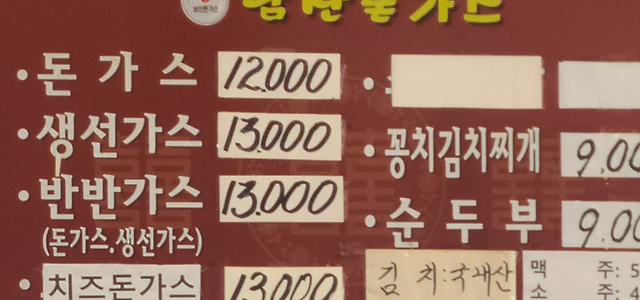 돈가스 12.000
생선가스 13.000
반반가스 13.000
(돈가스.생선가스)
치즈돈가스 13.000
꽁치김치찌개 9.00
순두부 9.00
김치:국내산
맥주: 5
소주: 4